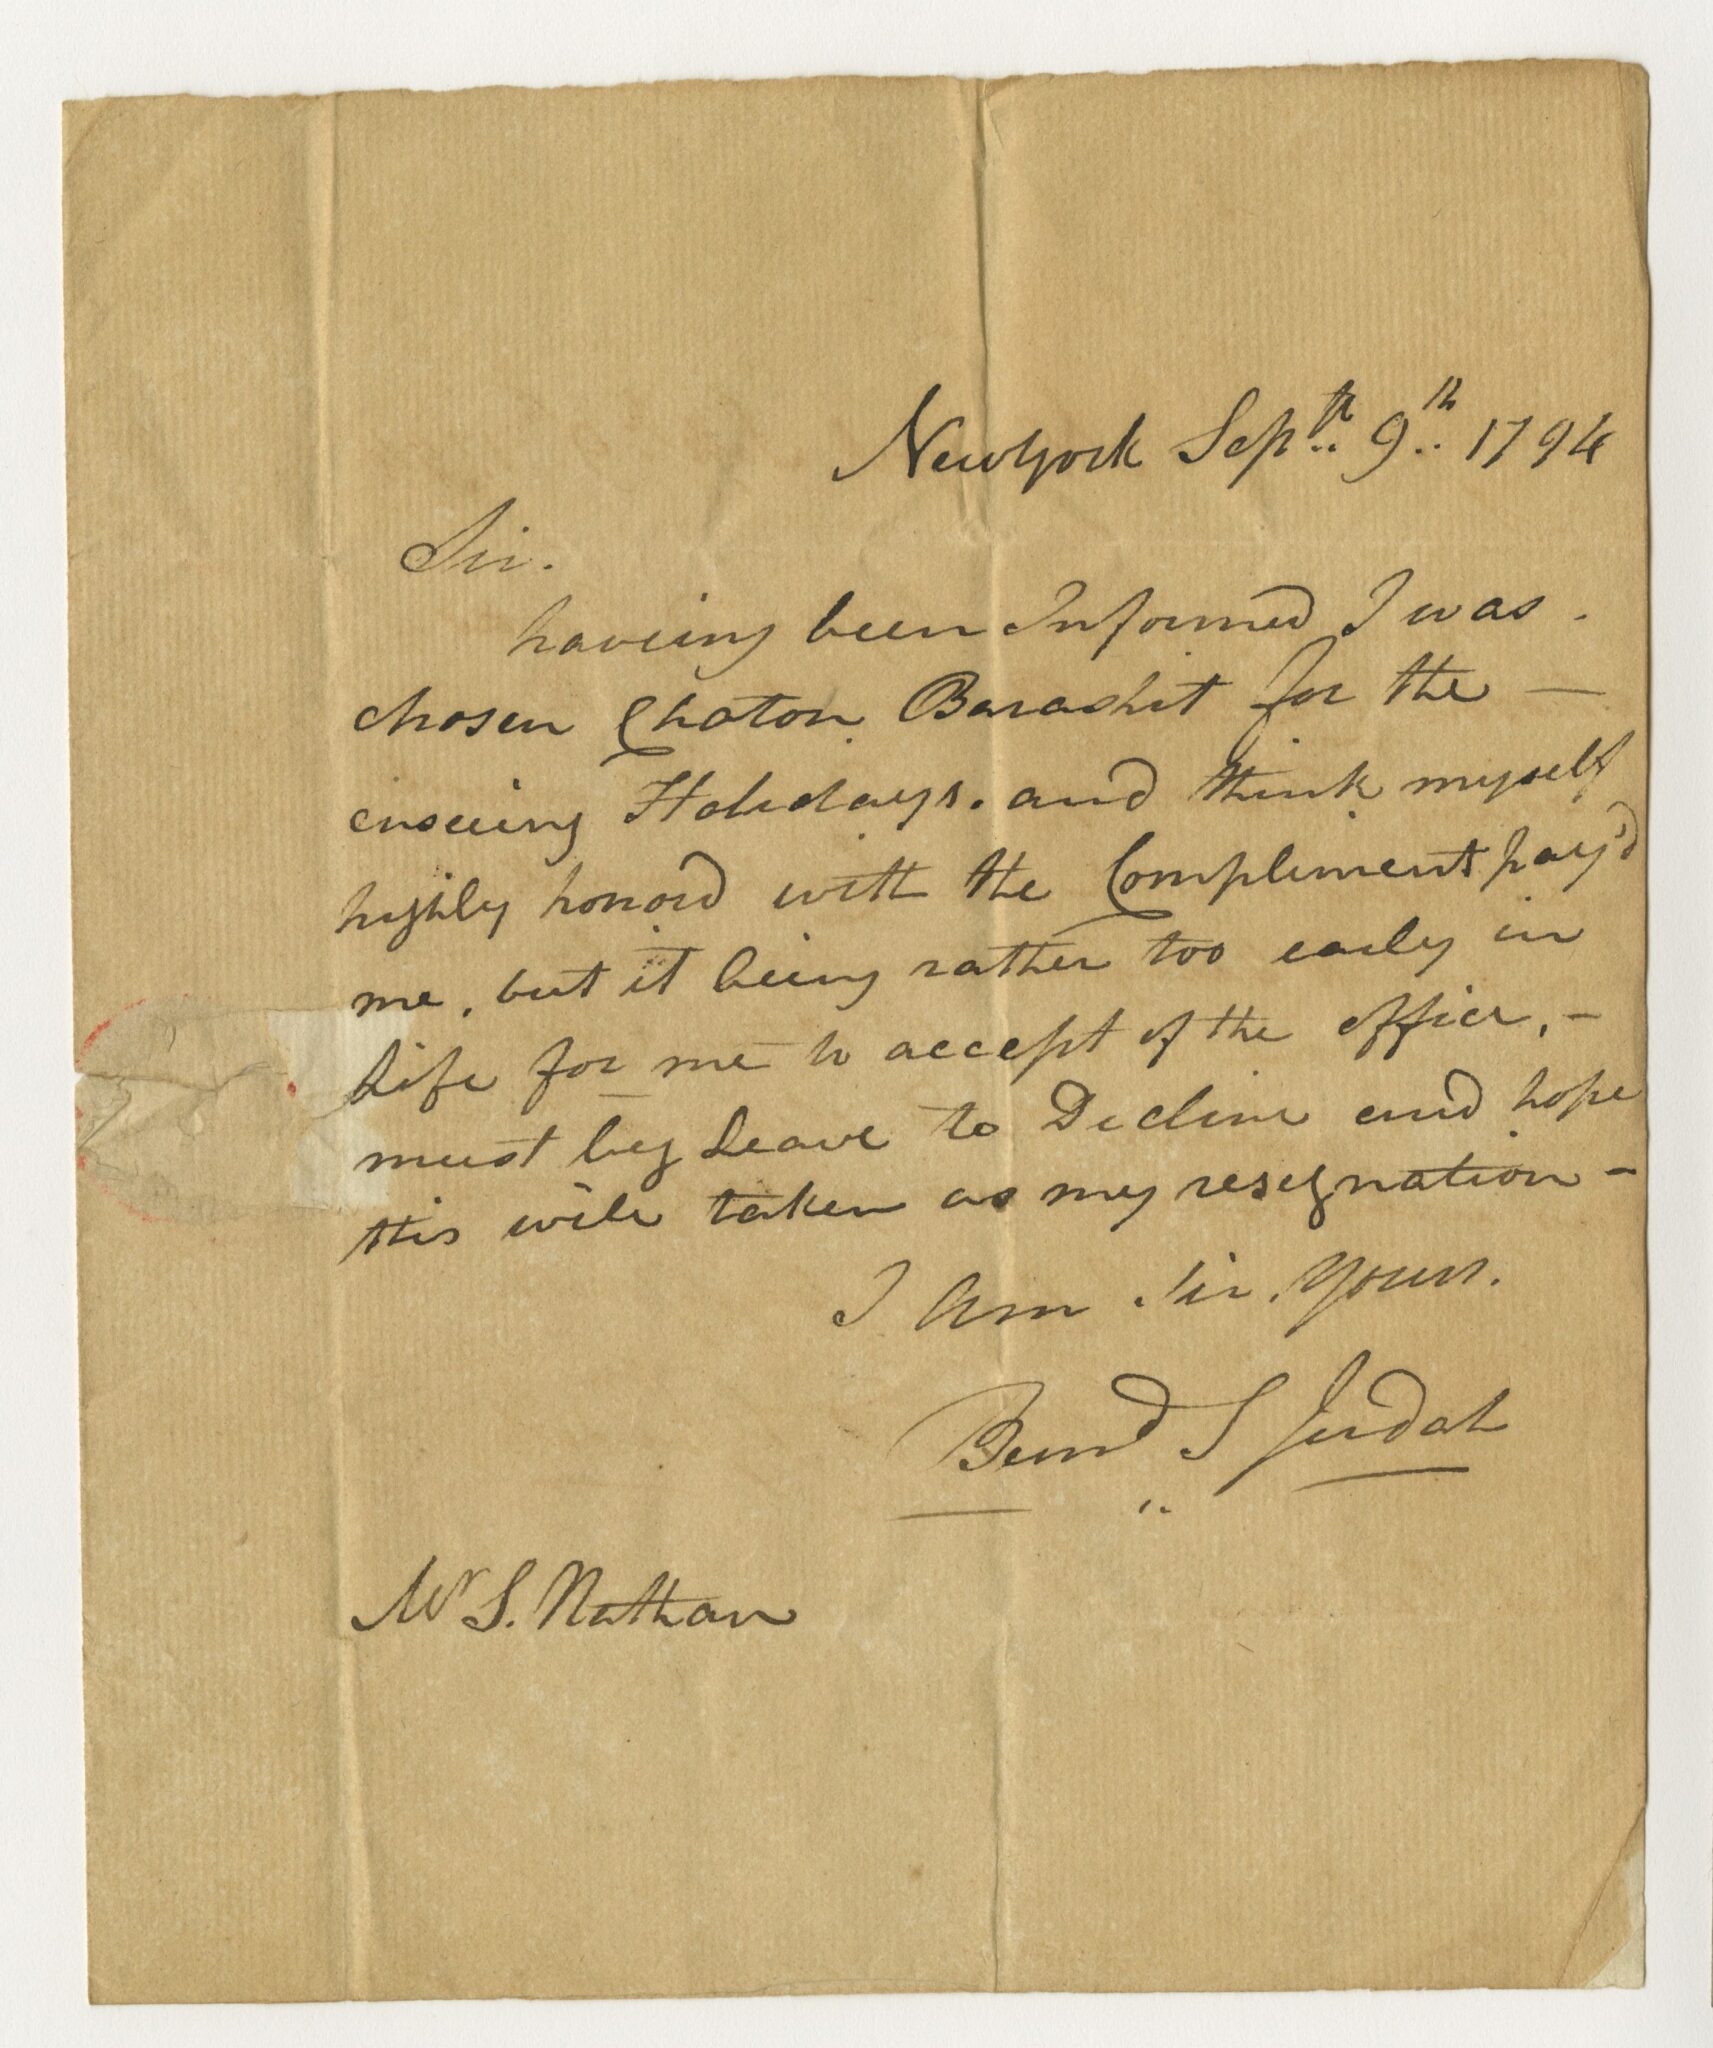 NewYork Septr 9th 1794
Sir.
haveing been Informed I was.
chosen Chaton Barashit for the —
ensueing Holidays. and think myself
highly honord with the Compliment pay'd
me, but it being rather too early in
Life for me to accept of the office, -
must beg Leave to Decline and hope
this will taken as my resegnation -
I Am Sir. Yours.
S Judah
Mr S. Nathan